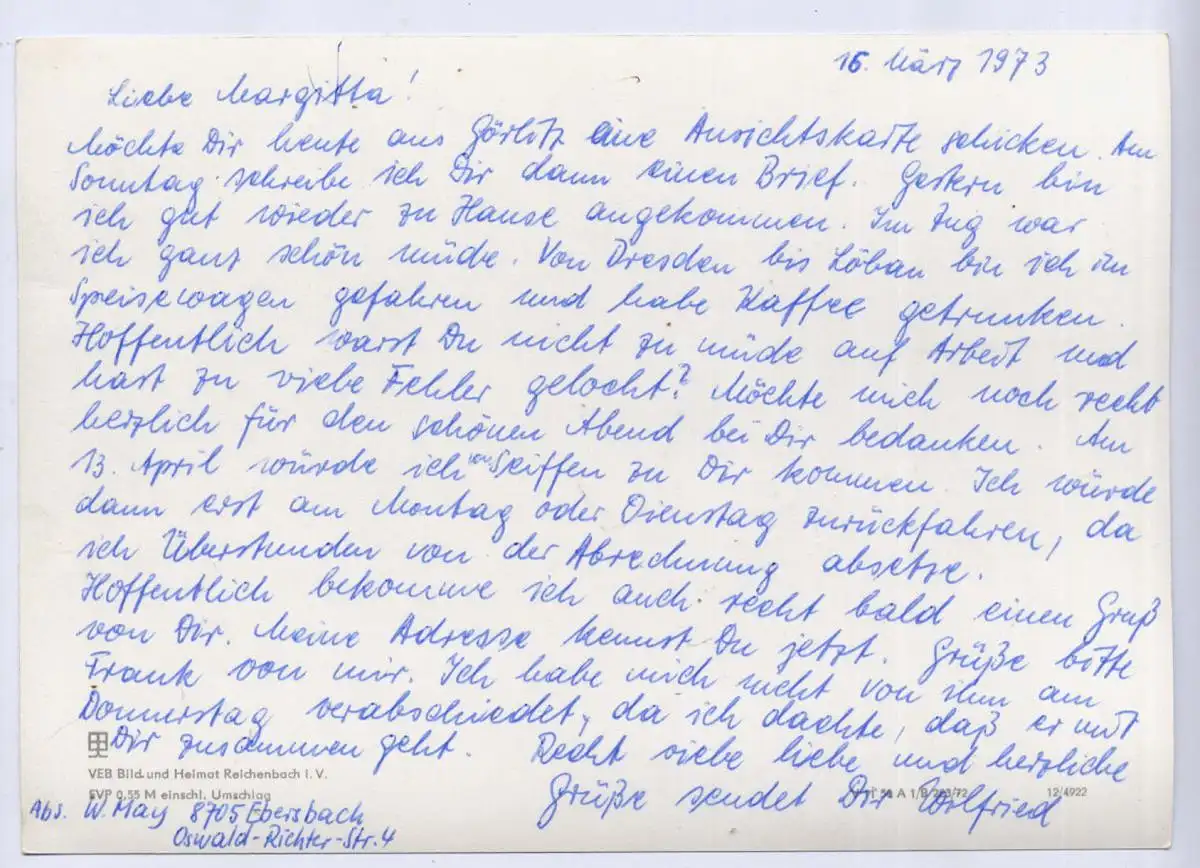 16. März 1973
Liebe Margitta!
Möchte Dir heute aus Görlitz eine Ansichtskarte schicken. Am
Sonntag schreibe ich Dir dann einen Brief. Gestern bin
ich gut wieder zu Hause angekommen. Im Zug war
ich ganz schön müde. Von Dresden bis Löbau bin ich im
Speisewagen gefahren und habe Kaffee getrunken.
Hoffentlich warst Du nicht zu müde auf Arbeit und
hast zu viele Fehler gelocht? Möchte mich noch recht
herzlich für den schönen Abend bei Dir bedanken. Am
13. April würde ich von Seiffen zu Dir kommen. Ich würde
dann erst am Montag oder Dienstag zurückfahren, da
ich Überstunden von der Abrechnung absetze.
Hoffentlich bekomme ich auch recht bald einen Gruß
von Dir. Meine Adresse kennst Du jetzt. Grüße bitte
Frank von mir. Ich habe mich nicht von ihm am
Donnerstag verabschiedet, da ich dachte, daß er mit
Dir zusammen geht. Recht viele liebe und herzliche
Grüße sendet Dir Wilfried
VEB Bild und Heimat Reichenbach i. V.
EVP 0,55 M einschl. Umschlag
12/4922
Abs. W. May 8705 Ebersbach
Oswald-Richter-Str. 4